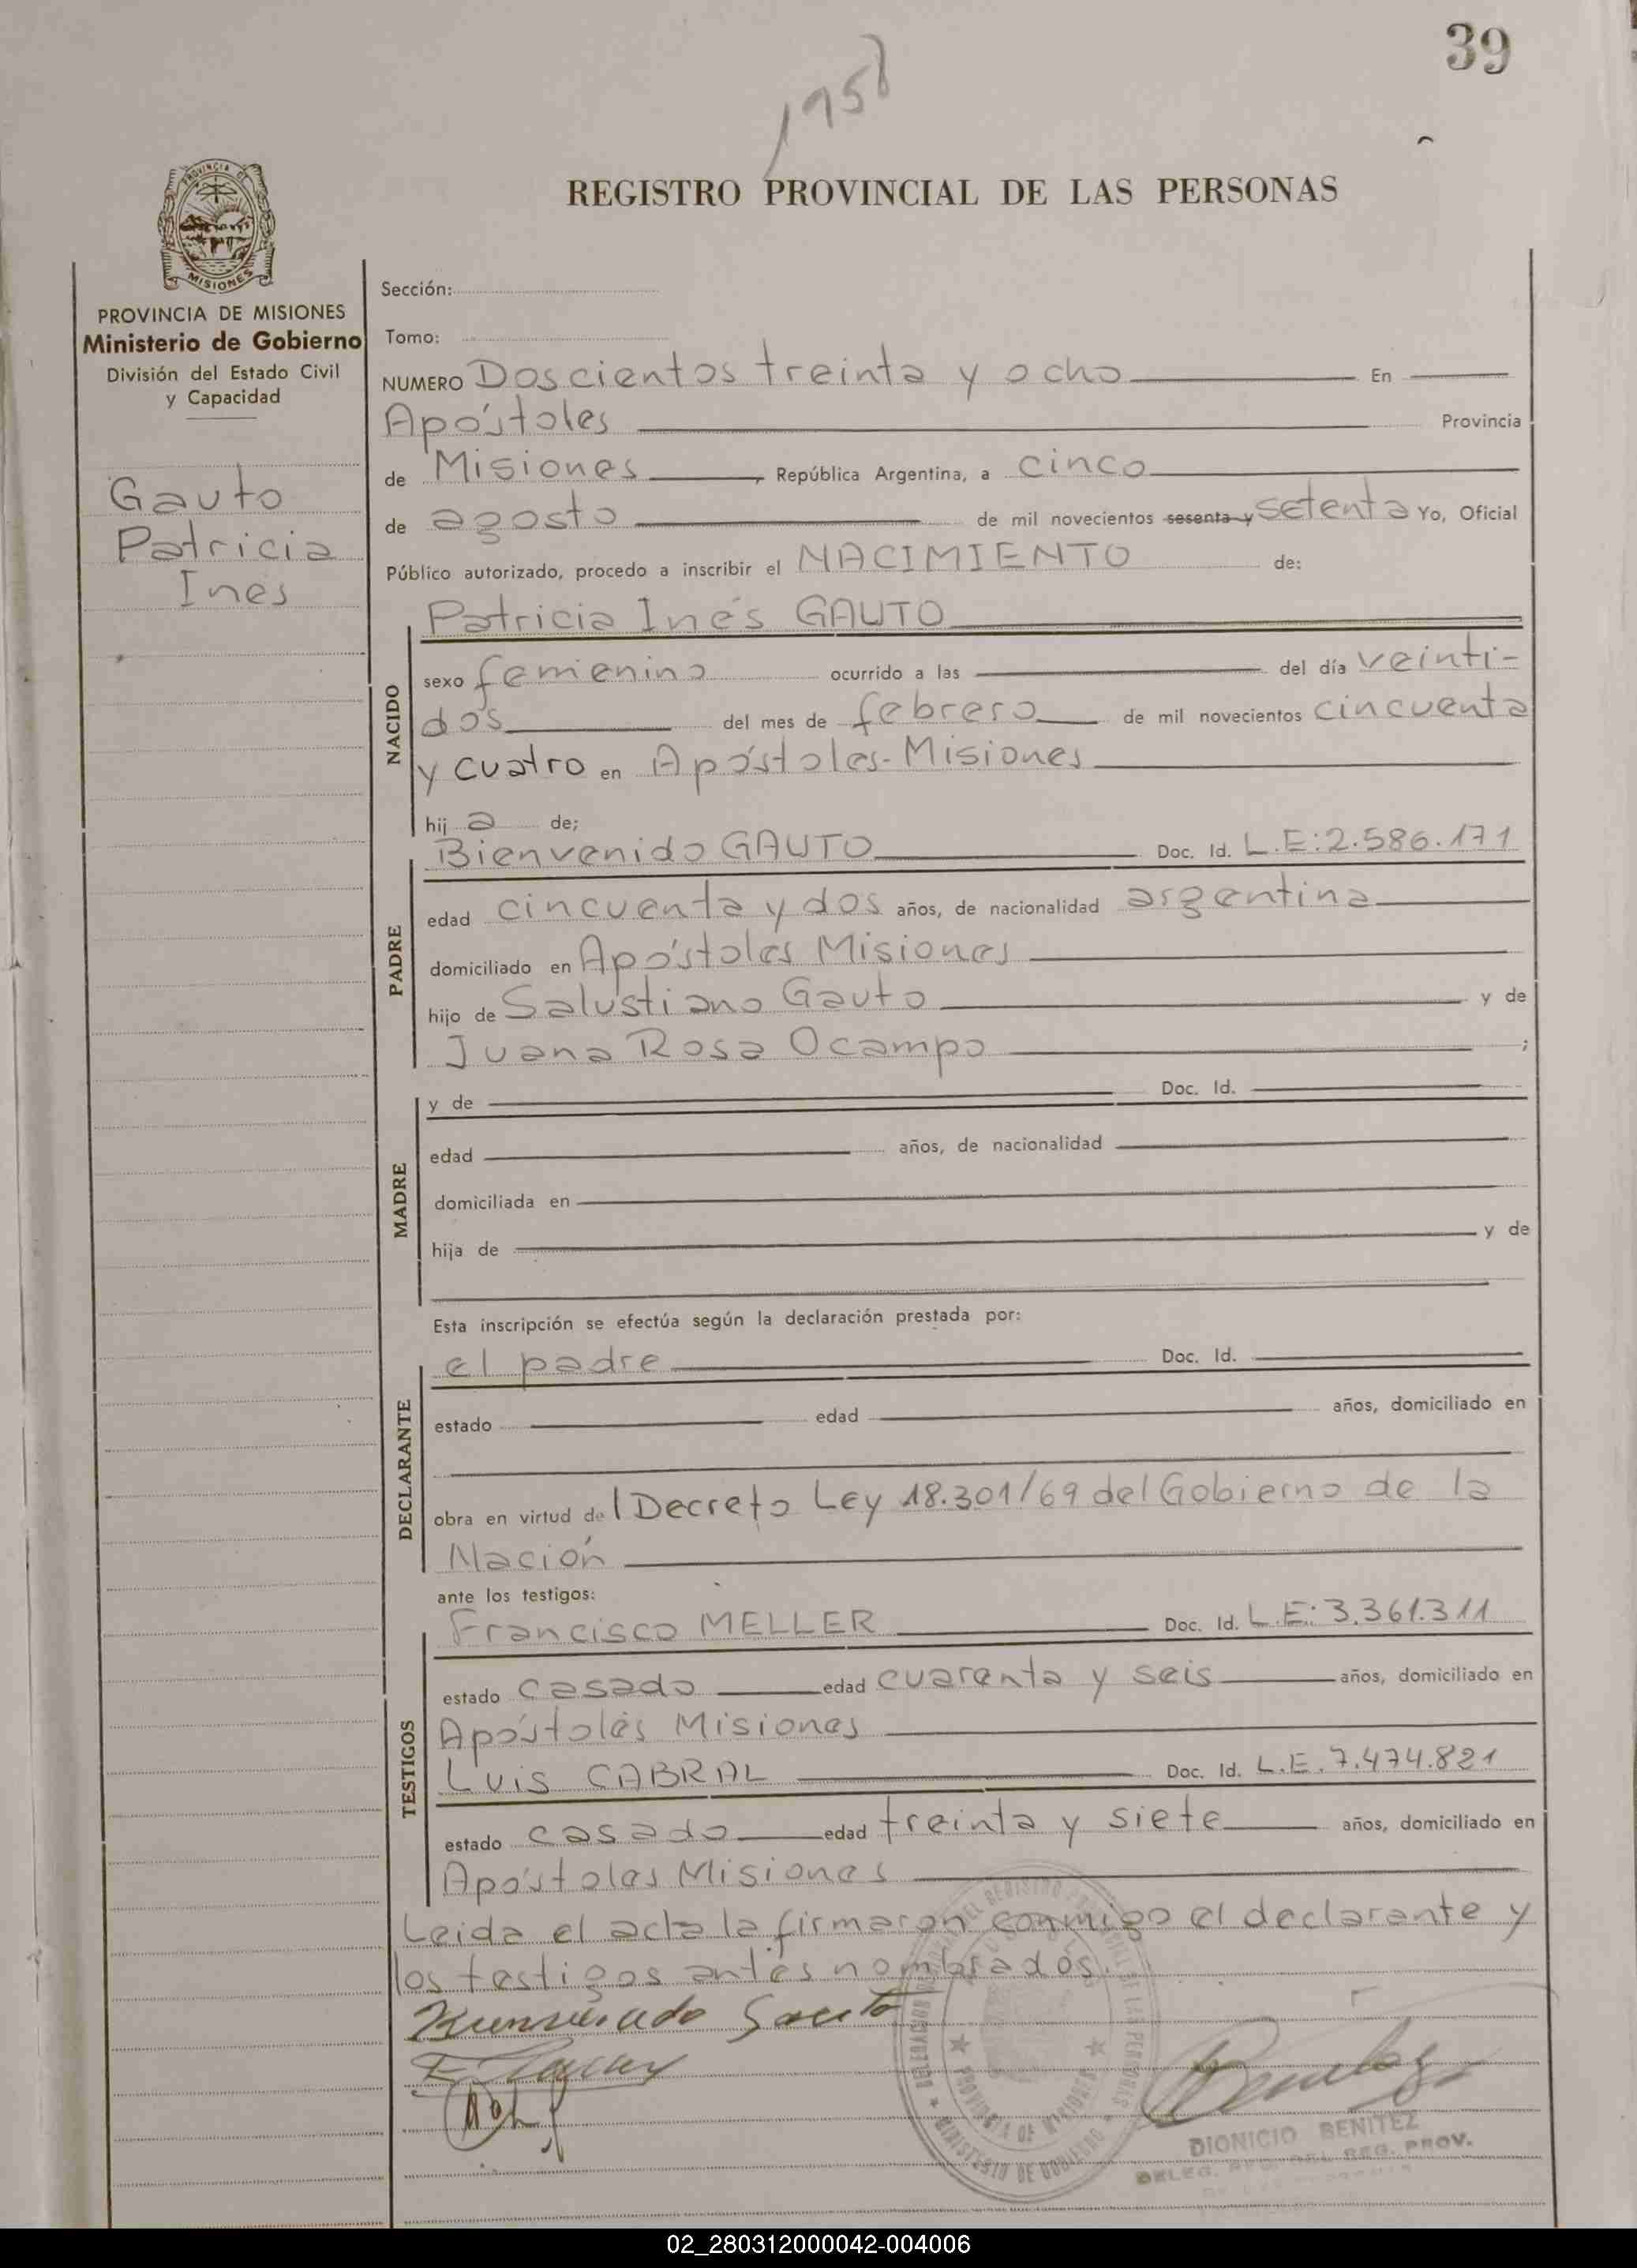 39
1958
REGISTRO PROVINCIAL DE LAS PERSONAS
PROVINCIA DE
MISIONES
PROVINCIA DE MISIONES
Ministerio de Gobierno
División del Estado Civil
y Capacidad
Gauto
Patricia
Inés
Sección:
Tomo:
NUMERO Doscientos treinta y ocho En
Apóstoles Provincia
de Misiones, República Argentina, a cinco
de agosto de mil novecientos sesenta y setenta Yo, Oficial
Público autorizado, procedo a inscribir el NACIMIENTO de:
NACIDO
Patricia Inés GAUTO
sexo femenino ocurrido a las del día veinti-
dós del mes de febrero de mil novecientos cincuenta
y cuatro en Apóstoles-Misiones
hij a de;
PADRE
Bienvenido GAUTO Doc. Id. L.E:2.586.171
edad cincuenta y dos años, de nacionalidad argentina
domiciliado en Apóstoles Misiones
hijo de Salustiano Gauto y de
Juana Rosa Ocampo ;
MADRE
y de Doc. Id.
edad años, de nacionalidad
domiciliada en
hija de y de
Esta inscripción se efectúa según la declaración prestada por:
DECLARANTE
el padre Doc. Id.
estado edad años, domiciliado en
obra en virtud del Decreto Ley 18.301/69 del Gobierno de la
Nación
ante los testigos:
TESTIGOS
Francisco MELLER Doc. Id. L.E: 3.361.311
estado casado edad cuarenta y seis años, domiciliado en
Apóstoles Misiones
Luis CABRAL Doc. Id. L.E. 7.474.821
estado casado edad treinta y siete años, domiciliado en
Apóstoles Misiones
Leida el acta la firmaron conmigo el declarante y
los testigos antes nombrados.
Bienvenido Gauto
PROVINCIA DE MISIONES
MINISTERIO DE GOBIERNO
DIONICIO BENITEZ
DELEG. REG. PROV.
02_280312000042-004006